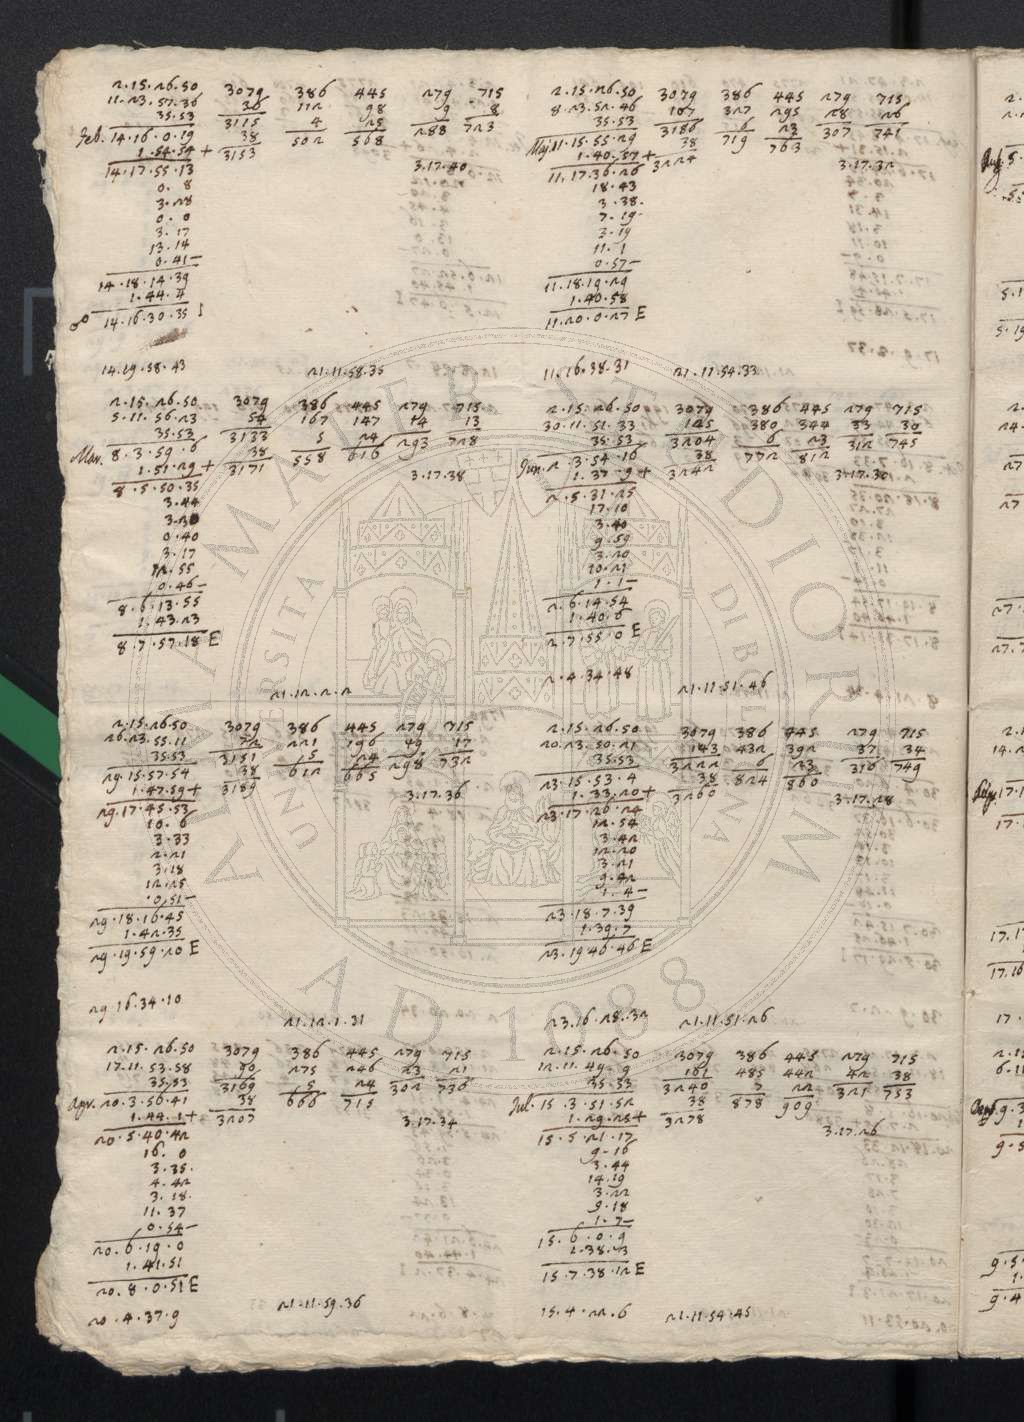 2.15.26.50 3079 386 445 279 715
11.23.57.36 36 112 98 9 8
35.53 3115 4 25 288 723
Feb. 14.16.0.19 38 502 568
1.54.54+ 3153
14.17.55.13 3.17.40
0.8
3.28
0.0
3.17
13.14
0.41-
14.18.14.39
1.44.4
14.16.30.35 I
14.19.58.43 21.11.58.35
2.15.26.50 3079 386 445 279 715
5.11.56.23 54 167 147 14 13
35.53 3133 5 24 293 728
Mar. 8.3.59.6 38 558 616
1.51.29+ 3171
8.5.50.35 3.17.38
3.44
3.30
0.40
3.17
12.55
0.46-
8.6.13.55
1.43.23
8.7.57.18 E
21.12.2.2
2.15.26.50 3079 386 445 279 715
26.23.55.11 72 221 196 19 17
35.53 3151 5 24 298 732
29.15.57.54 38 612 665
1.47.59+ 3189
29.17.45.53 3.17.36
10.6
3.33
2.21
3.18
12.25
0.51-
29.18.16.45
1.42.35
29.19.59.20 E
29.16.34.10 21.12.1.31
2.15.26.50 3079 386 445 279 715
17.11.53.58 90 275 246 23 21
35.53 3169 5 24 302 736
Apr. 20.3.56.41 38 666 715
1.44.1+ 3207
20.5.40.42 3.17.34
16.0
3.35.
4.42
3.18.
11.37
0.54-
20.6.19.0
1.41.51
20.8.0.51 E
20.4.37.9 21.11.59.36
2.15.26.50 3079 386 445 279 715
8.23.52.46 107 327 295 28 26
35.53 3186 6 23 307 741
Maj. 11.15.55.29 38 719 763
1.40.57+ 3224
11.17.36.26 3.17.32
18.43
3.38.
7.19
3.19
11.1
0.57-
11.18.19.29
1.40.58
11.20.0.27 E
11.16.38.31 21.11.54.33
2.15.26.50 3079 386 445 279 715
30.11.51.33 125 380 344 33 30
35.53 3204 6 23 312 745
Jun. 2.3.54.16 38 772 812
1.37.9+ 3242
2.5.31.25 3.17.30
17.10
3.40
9.59
3.20
10.21
1.1-
2.6.14.54
1.40.6
2.7.55.0 E
2.4.34.48 21.11.51.46
2.15.26.50 3079 386 445 279 715
20.23.50.21 143 432 392 37 34
35.53 3222 6 23 316 749
23.15.53.4 38 824 860
1.33.20+ 3260
23.17.26.24 3.17.28
12.54
3.42
12.20
3.21
9.42
1.4-
23.18.7.39
1.39.7
23.19.46.46 E
23.16.28.32 21.11.51.26
2.15.26.50 3079 386 445 279 715
12.11.49.9 161 485 442 42 38
35.53 3240 7 22 321 753
Jul. 15.3.51.52 38 878 909
1.29.25+ 3278
15.5.21.17 3.17.26
9.16
3.44
14.19
3.22
9.18
1.7-
15.6.0.9
1.38.3
15.7.38.12 E
15.4.22.6 21.11.54.45